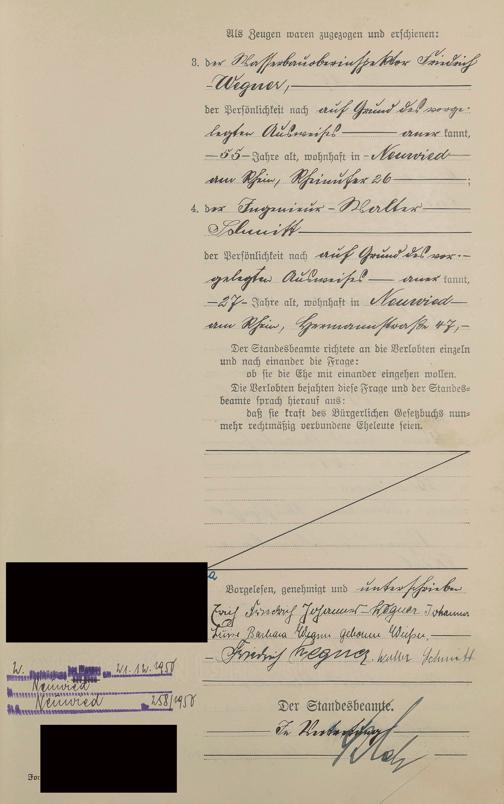 Als Zeugen waren zugezogen und erschienen:
3. der Wasserbauoberinspektor Friedrich
Wegner,
der Persönlichkeit nach auf Grund des vorge-
legten Ausweises anerkannt,
55 Jahre alt, wohnhaft in Neuwied
am Rhein, Rheinufer 26;
4. der Ingenieur Walter
Schmitt
der Persönlichkeit nach auf Grund des vor-
gelegten Ausweises anerkannt,
27 Jahre alt, wohnhaft in Neuwied
am Rhein, Hermannstraße 47,
Der Standesbeamte richtete an die Verlobten einzeln
und nach einander die Frage:
ob sie die Ehe mit einander eingehen wollen.
Die Verlobten bejahten diese Frage und der Standes-
beamte sprach hierauf aus:
daß sie kraft des Bürgerlichen Gesetzbuchs nun-
mehr rechtmäßig verbundene Eheleute seien.
a
Vorgelesen, genehmigt und unterschrieben
Friedrich Johannes Wegner Johanna
Barbara Wegner geborene
Friedrich Wegner. Walter Schmitt
2. 21.12.1950
Neuwied
Neuwied 258/1950
Der Standesbeamte.
In Vertretung